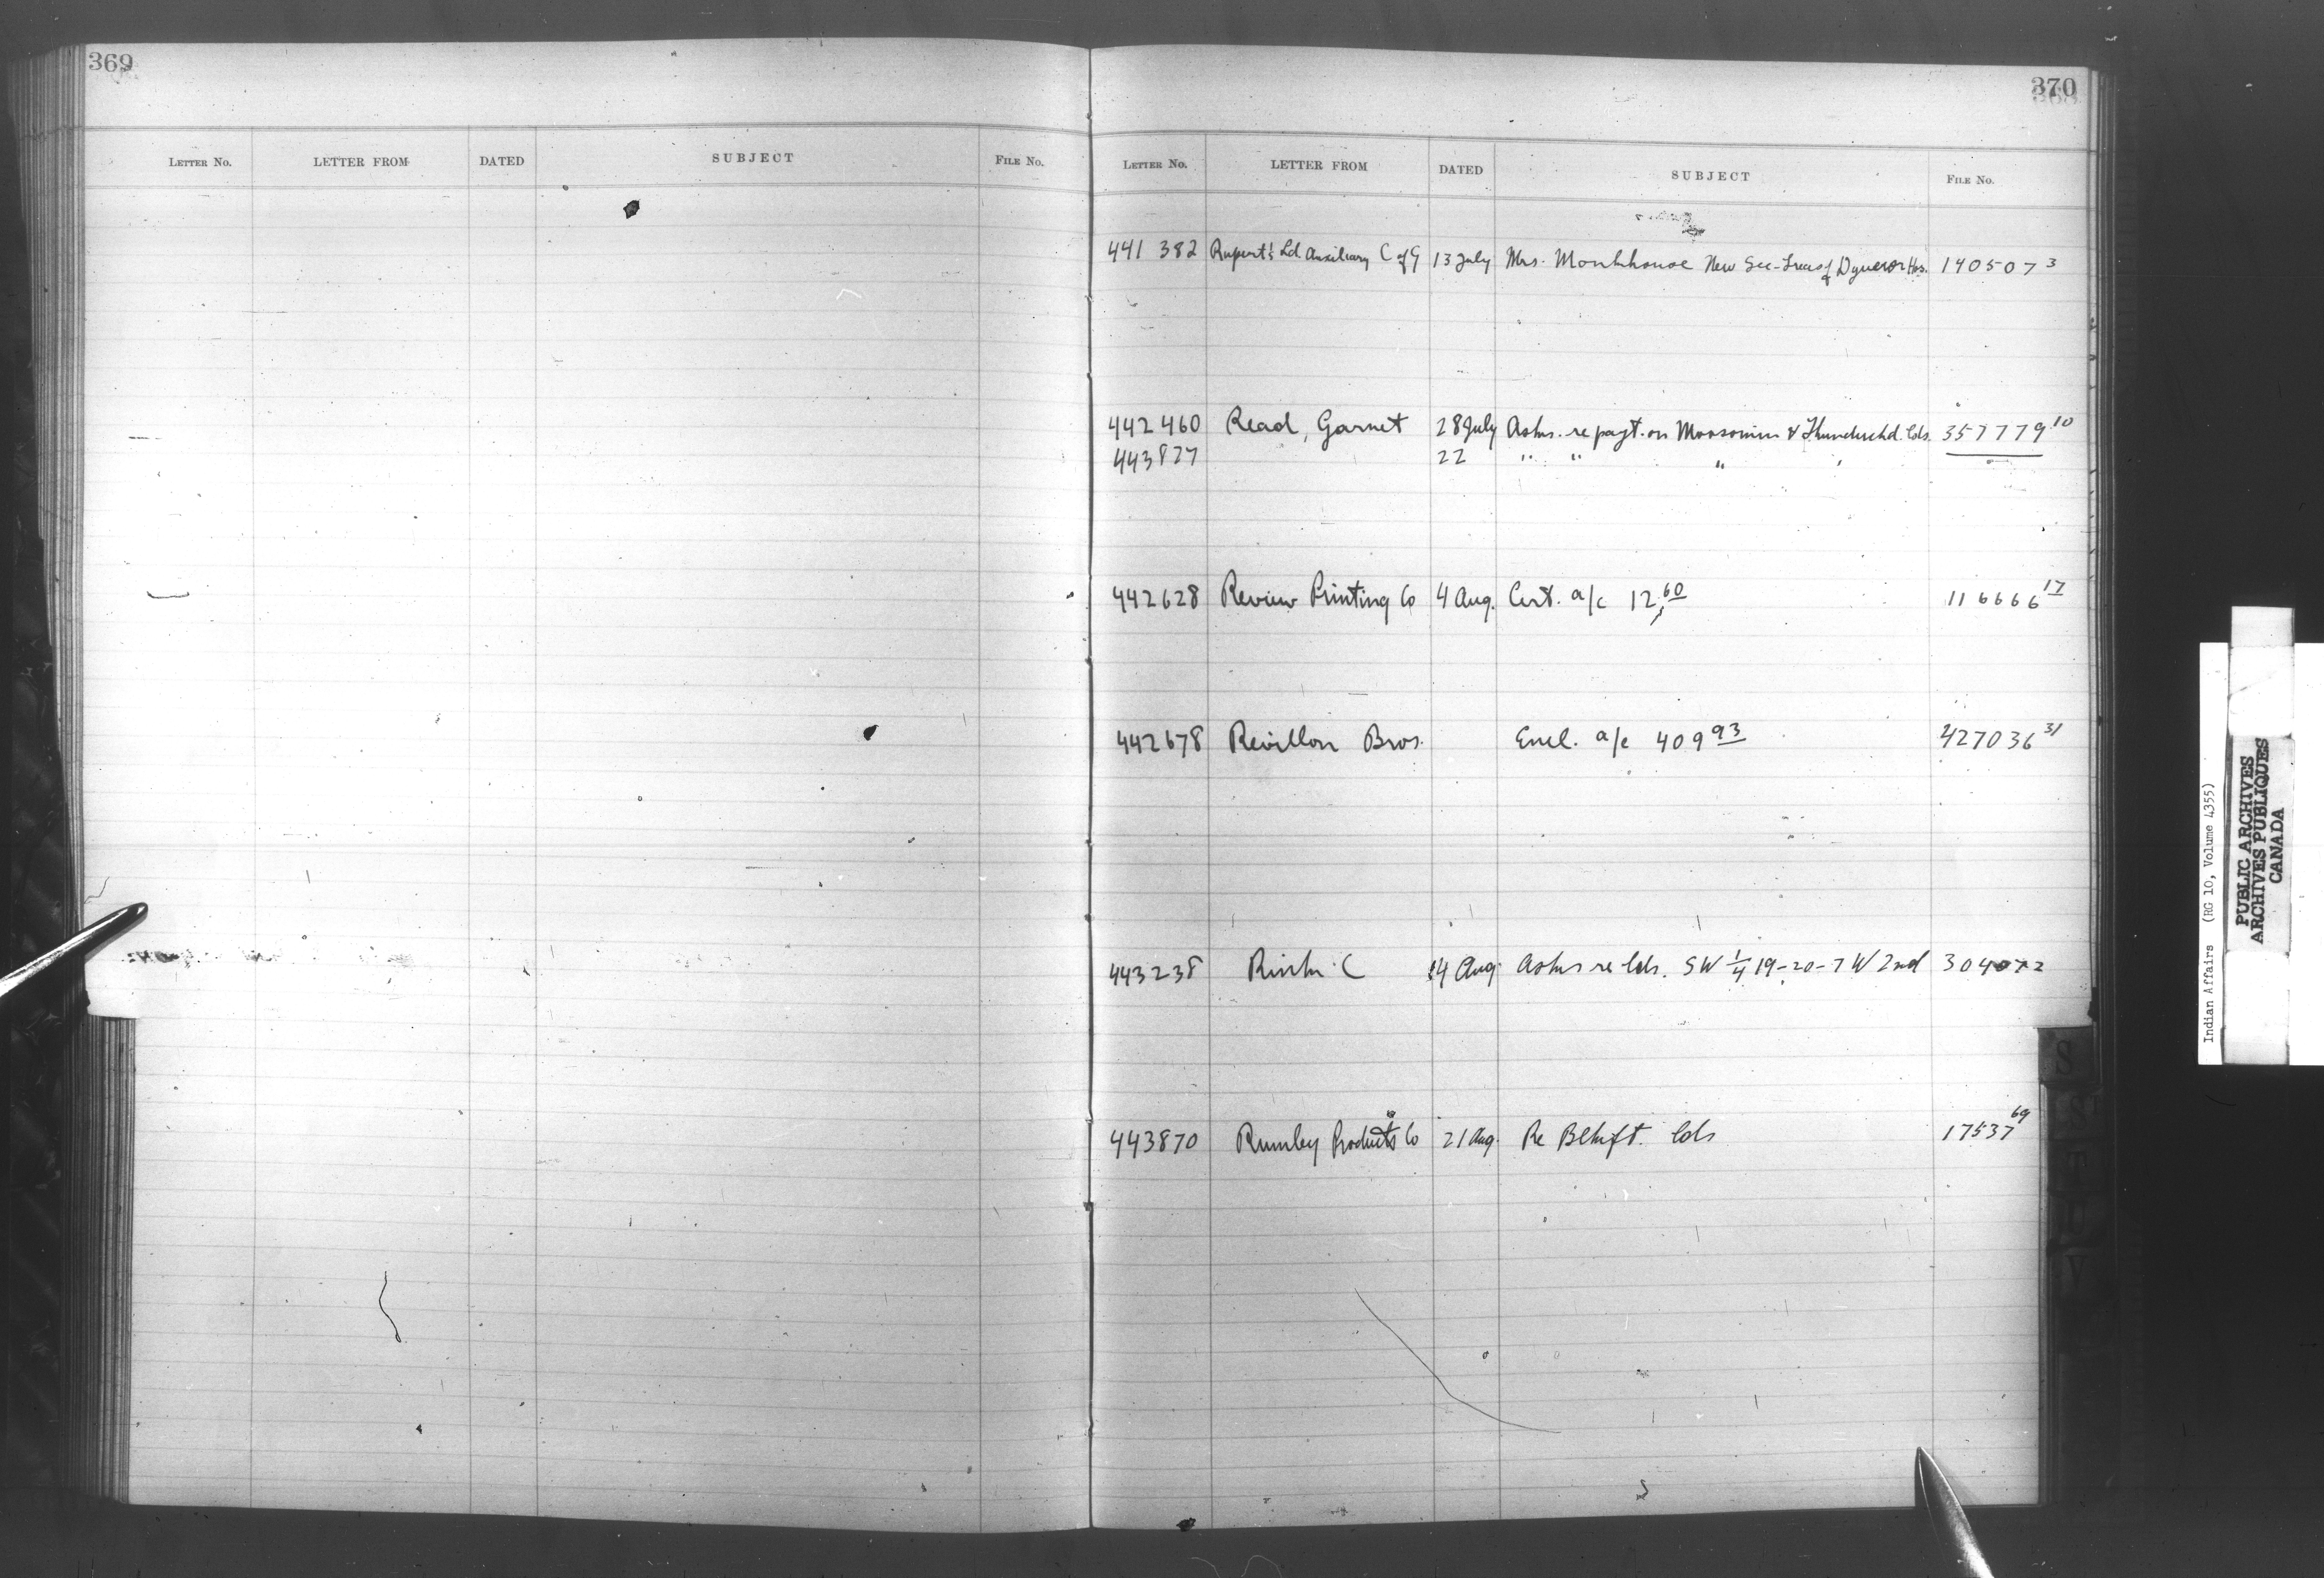 369
LETTER No. LETTER FROM DATED SUBJECT FILE No.
370
LETTER No. LETTER FROM DATED SUBJECT FILE No.
441 382 Rupert's Ld Auxiliary C of G 13 July Mrs. Monkhouse New Sec-Treas of Dynevor Hos. 140507 3
442 460 Read, Garnet 28 July Asks. re payt. on Moosomin & Thunderchd. lds. 357779 10
443827 22 " " "
442628 Review Printing Co 4 Aug. Cert. a/c 12.60 116666 17
442678 Revillon Bros. Encl. a/c 409 93 427036 31
443238 C 14 Aug. Asks re lds. SW 1/4 19-20-7 W 2nd 304072
443870 Rumley Products Co 21 Aug. Re Blkft. lds 17537 69
S
T
U
V
Indian Affairs (RG 10, Volume 4355)
PUBLIC ARCHIVES
ARCHIVES PUBLIQUES
CANADA